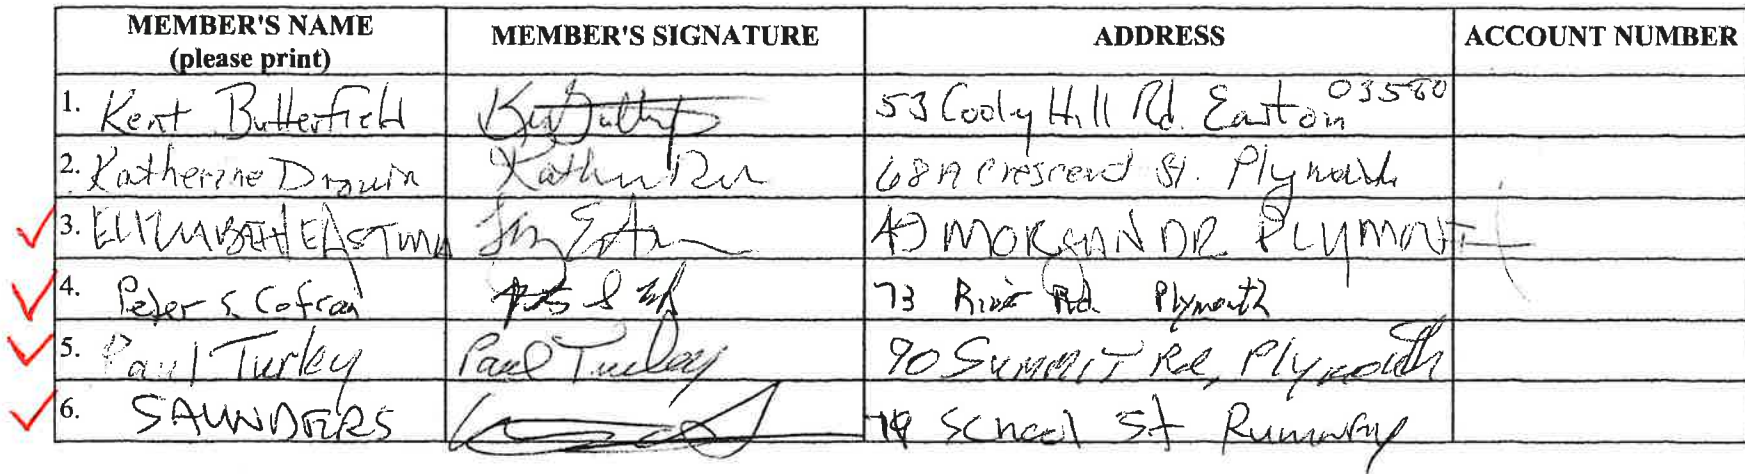 MEMBER'S NAME MEMBER'S SIGNATURE ADDRESS ACCOUNT NUMBER
(please print)
1. Kent Butterfield 53 Cooly Hill Rd. Easton 03580
2. Katherine Drouin 68A Crescent St. Plymouth
3. ELIZABETH EASTMAN MORGAN DR PLYMOUTH
4. Peter S Cofran 73 River Rd. Plymouth
5. Paul Turley Paul Turley 90 SUMMIT Rd, Plymouth
6. SAUNDERS School St Rumney